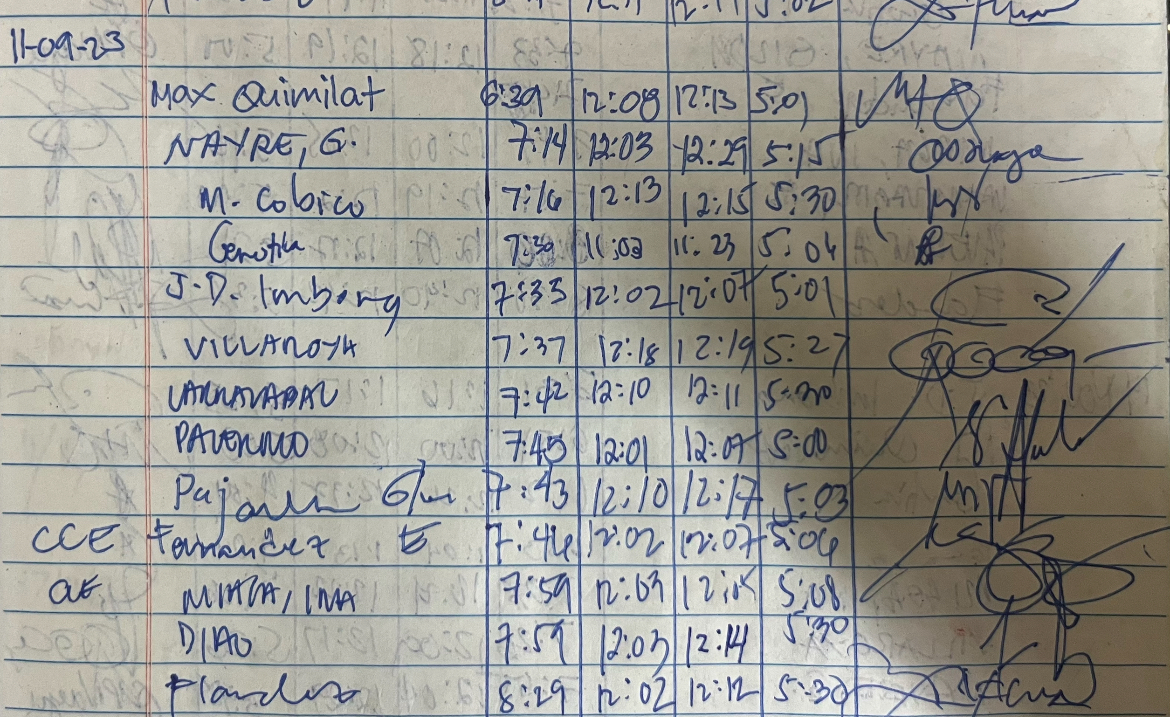 12:11 5:02
11-09-23
Max Quimilat 6:39 12:08 12:13 5:01
NAYRE, G. 7:14 12:03 12:29 5:15
M. Cobico 7:16 12:13 12:15 5:30
11:23 5:04
J.D. Imbong 7:33 12:02 12:07 5:01
VILLAROYA 7:37 12:18 12:19 5:27
7:42 12:10 12:11 5:30
PALERMO 7:45 12:01 12:07 5:00
7:43 12:10 12:17 5:03
CCE Fernandez E 7:46 12:02 12:07 5:06
MIRZA, IMA 7:59 12:03 5:08
DIAO 7:59 12:03 12:14 5:30
Flandez 8:29 12:02 12:12 5:30